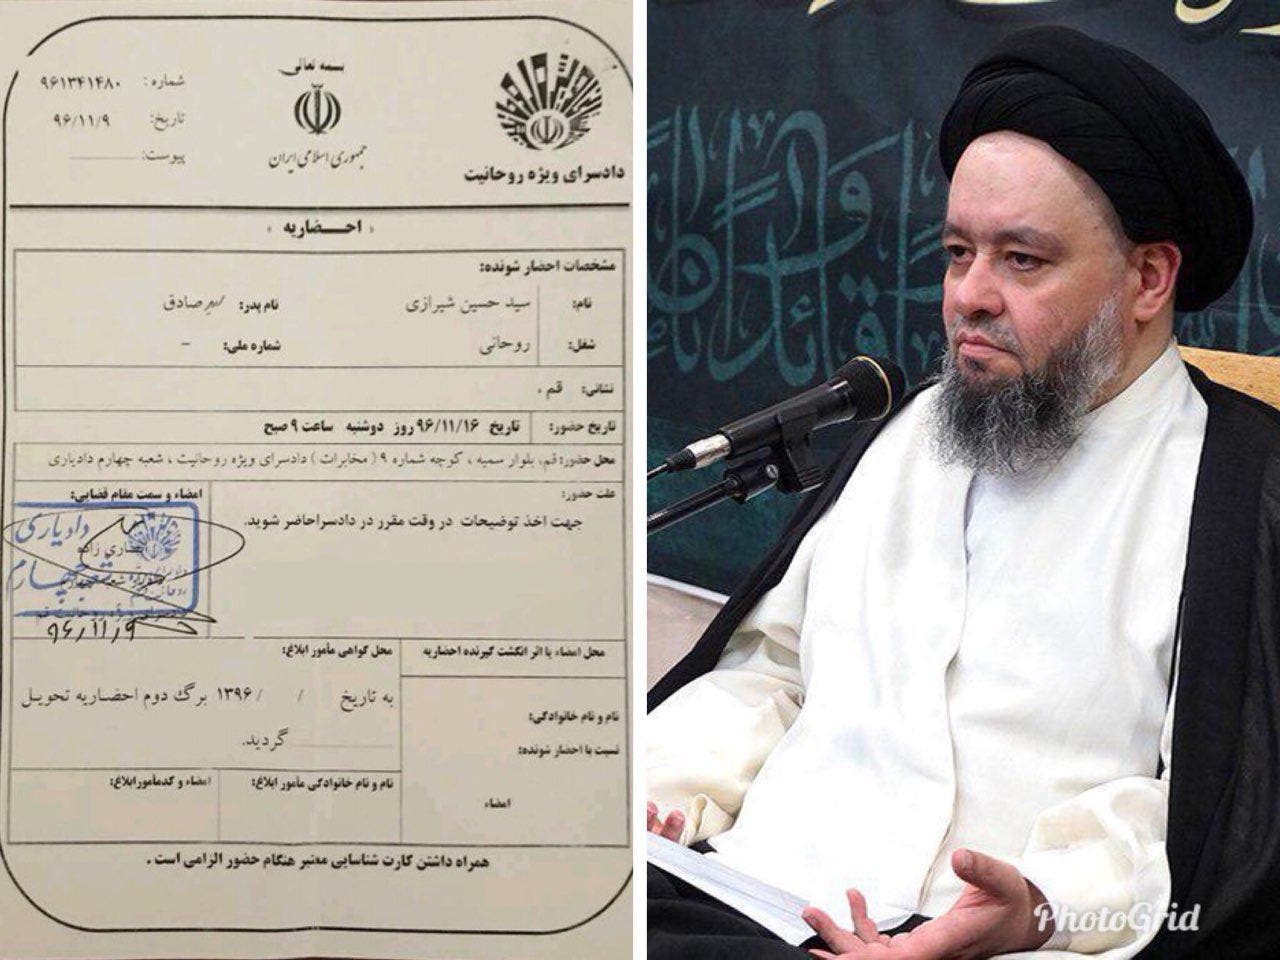 بسمه تعالی
جمهوری اسلامی ایران
دادسرای ویژه روحانیت
شماره: ۹۶۱۳۴۱۴۸۰
تاریخ: ۹۶/۱۱/۹
پیوست:
« احضاریه »
مشخصات احضار شونده:
نام: سید حسین شیرازی نام پدر: سید صادق
شغل: روحانی شماره ملی: –
نشانی: قم ،
تاریخ حضور: تاریخ ۹۶/۱۱/۱۶ روز دوشنبه ساعت ۹ صبح
محل حضور: قم، بلوار سمیه ، کوچه شماره ۹ ( مخابرات ) دادسرای ویژه روحانیت ، شعبه چهارم دادیاری
علت حضور:
جهت اخذ توضیحات در وقت مقرر در دادسرا حاضر شوید.
امضاء و سمت مقام قضایی:
دادیاری
شعبه چهارم
۹۶/۱۱/۹
محل امضاء یا اثر انگشت گیرنده احضاریه
نام و نام خانوادگی:
نسبت با احضار شونده:
امضاء
محل گواهی مأمور ابلاغ:
به تاریخ / / ۱۳۹۶ برگ دوم احضاریه تحویل
گردید.
نام و نام خانوادگی مأمور ابلاغ:
امضاء و کدمأمور ابلاغ:
همراه داشتن کارت شناسایی معتبر هنگام حضور الزامی است .
PhotoGrid